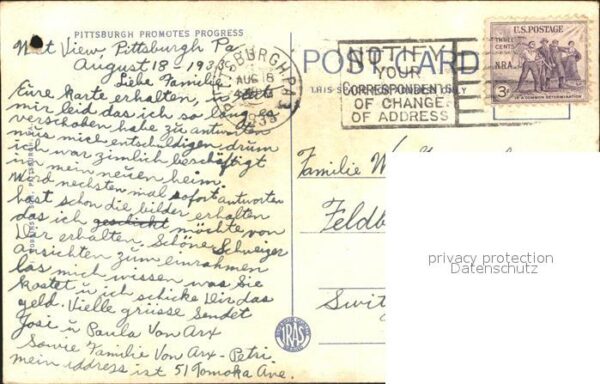 PITTSBURGH PROMOTES PROGRESS
West View, Pittsburgh Pa.
August 18 1933
Liebe Familie
Eure Karte erhalten, u
mir leid das ich so lang es
verschoben habe zu antworten
mich entschuldigen drum
ich war zimlich beschäftigt
in mein neuen heim
Word nechsten mal sofort antworten
hast schon die bilder erhalten
das ich geschickt möchte von
Dir erhalten. Schöne Schweizer
Ansichten zum einrahmen
las mich wissen was Sie
kostet u ich schicke Dir das
geld. Vielle grüsse sendet
Josi u Paula Von Arx
Sowie Familie Von Arx - Petri.
mein address ist 51 Tomoka Ave.
PITTSBURGH, PA
AUG 18
1933
POST CARD
THIS S ONLY
NOTIFY
YOUR
CORRESPONDENTS
OF CHANGE
OF ADDRESS
U.S. POSTAGE
THREE
CENTS
N.R.A.
3¢
IN A COMMON DETERMINATION
Familie W
Feldb
Switz
privacy protection
Datenschutz